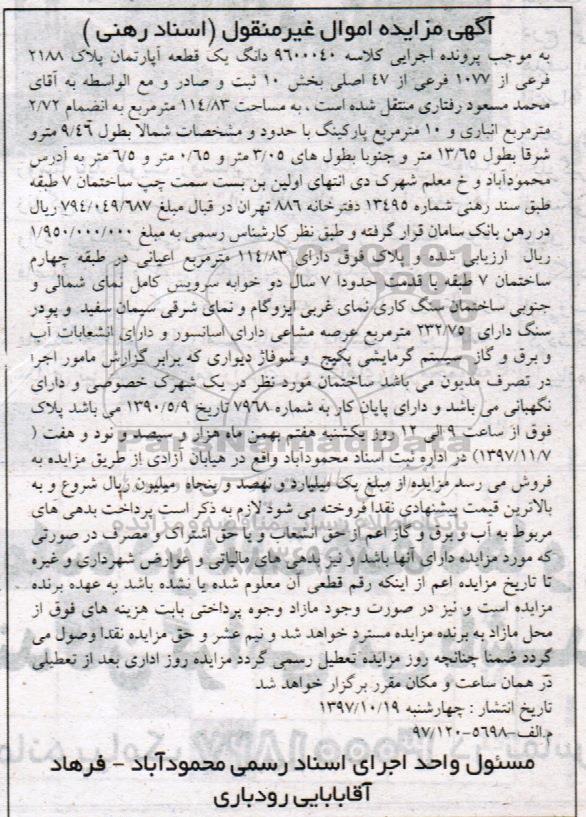 آگهی مزایده اموال غیرمنقول (اسناد رهنی)
به موجب پرونده اجرایی کلاسه ۹۶۰۰۰۴۰ دانگ یک قطعه آپارتمان پلاک ۲۱۸۸
فرعی از ۱۰۷۷ فرعی از ۴۷ اصلی بخش ۱۰ ثبت و صادر و مع الواسطه به آقای
محمد مسعود رفتاری منتقل شده است ، به مساحت ۱۱۴/۸۳ مترمربع به انضمام ۲/۷۲
مترمربع انباری و ۱۰ مترمربع پارکینگ با حدود و مشخصات شمالا بطول ۹/۴۶ مترو
شرقا بطول ۱۳/۶۵ متر و جنوبا بطول های ۳/۰۵ متر و ۰/۶۵ متر و ۶/۵ متر به آدرس
محمودآباد و خ معلم شهرک دی انتهای اولین بن بست سمت چپ ساختمان ۷ طبقه
طبق سند رهنی شماره ۱۳۴۹۵ دفترخانه ۸۸۶ تهران در قبال مبلغ ۷۹۴/۰۴۹/۶۸۷ ریال
در رهن بانک سامان قرار گرفته و طبق نظر کارشناس رسمی به مبلغ ۱/۹۵۰/۰۰۰/۰۰۰
ریال ارزیابی شده و پلاک فوق دارای ۱۱۴/۸۳ مترمربع اعیانی در طبقه چهارم
ساختمان ۷ طبقه با قدمت حدودا ۷ سال دو خوابه سرویس کامل نمای شمالی و
جنوبی ساختمان سنگ کاری نمای غربی ایزوگام و نمای شرقی سیمان سفید و پودر
سنگ دارای ۲۳۲/۷۵ مترمربع عرصه مشاعی دارای آسانسور و دارای انشعابات آب
و برق و گاز سیستم گرمایشی پکیج و شوفاژ دیواری که برابر گزارش مامور اجرا
در تصرف مدیون می باشد ساختمان مورد نظر در یک شهرک خصوصی و دارای
نگهبانی می باشد و دارای پایان کار به شماره ۷۹۶۸ تاریخ ۱۳۹۰/۵/۹ می باشد پلاک
فوق از ساعت ۹ الی ۱۲ روز یکشنبه هفتم بهمن ماه هزار و سیصد و نود و هفت (
۱۳۹۷/۱۱/۷) در اداره ثبت اسناد محمودآباد واقع در هیابان آزادی از طریق مزایده به
فروش می رسد مزایده از مبلغ یک میلیارد و نهصد و پنجاه میلیون ریال شروع و به
بالاترین قیمت پیشنهادی نقدا فروخته می شود لازم به ذکر است پرداخت بدهی های
مربوط به آب و برق و گاز اعم از حق انشعاب و یا حق اشتراک و مصرف در صورتی
که مورد مزایده دارای آنها باشد و نیز بدهی های مالیاتی و عوارض شهرداری و غیره
تا تاریخ مزایده اعم از اینکه رقم قطعی آن معلوم شده یا نشده باشد به عهده برنده
مزایده است و نیز در صورت وجود مازاد وجوه پرداختی بابت هزینه های فوق از
محل مازاد به برنده مزایده مسترد خواهد شد و نیم عشر و حق مزایده نقدا وصول می
گردد ضمنا چنانچه روز مزایده تعطیل رسمی گردد مزایده روز اداری بعد از تعطیلی
در همان ساعت و مکان مقرر برگزار خواهد شد
تاریخ انتشار : چهارشنبه ۱۳۹۷/۱۰/۱۹
م.الف-۵۶۹۸-۹۷/۱۲۰
مسئول واحد اجرای اسناد رسمی محمودآباد - فرهاد
آقابابایی رودباری